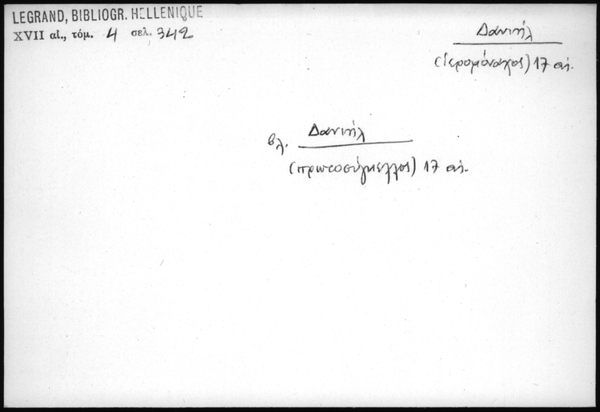 LEGRAND, BIBLIOGR. HELLENIQUE
XVII αἰ., τόμ. 4 σελ. 342
Δανιήλ
(Ἱερομόναχος) 17 αἰ.
βλ. Δανιήλ
(πρωτοσύγκελλος) 17 αἰ.